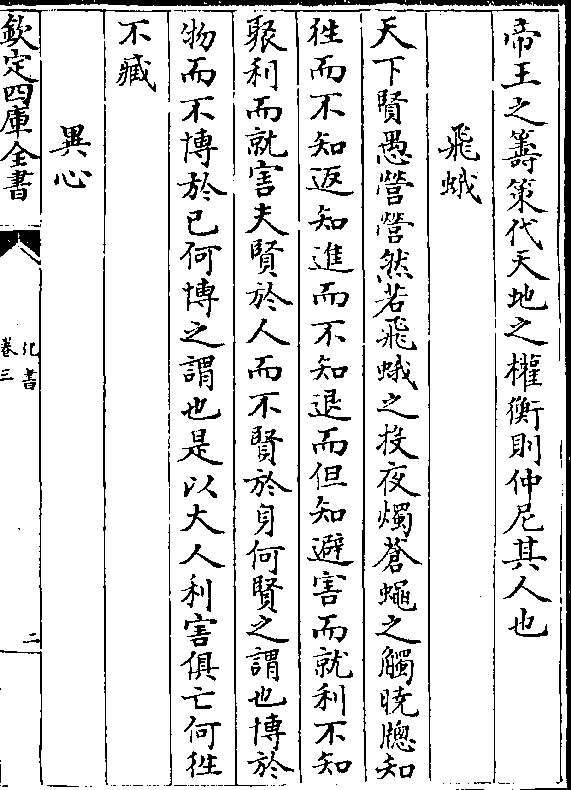 帝王之籌策代天地之權衡則仲尼其人也
飛蛾
天下賢愚營營然若飛蛾之投夜燭蒼蠅之觸曉牕知
徃而不知返知進而不知退而但知避害而就利不知
聚利而就害夫賢於人而不賢於身何賢之謂也博於
物而不博於已何博之謂也是以大人利害俱亡何徃
不臧
異心
欽定四庫全書
化書
卷三
二